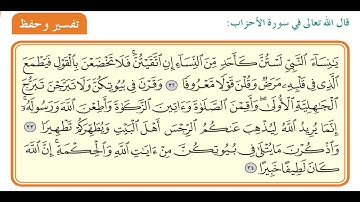 تفسير وحفظ
قال الله تعالى في سورة الأحزاب:
يَٰنِسَآءَ ٱلنَّبِيِّ لَسۡتُنَّ كَأَحَدٖ مِّنَ ٱلنِّسَآءِ إِنِ ٱتَّقَيۡتُنَّۚ فَلَا تَخۡضَعۡنَ بِٱلۡقَوۡلِ فَيَطۡمَعَ
ٱلَّذِي فِي قَلۡبِهِۦ مَرَضٞ وَقُلۡنَ قَوۡلٗا مَّعۡرُوفٗا ٣٢ وَقَرۡنَ فِي بُيُوتِكُنَّ وَلَا تَبَرَّجۡنَ تَبَرُّجَ
ٱلۡجَٰهِلِيَّةِ ٱلۡأُولَىٰۖ وَأَقِمۡنَ ٱلصَّلَوٰةَ وَءَاتِينَ ٱلزَّكَوٰةَ وَأَطِعۡنَ ٱللَّهَ وَرَسُولَهُۥٓۚ
إِنَّمَا يُرِيدُ ٱللَّهُ لِيُذۡهِبَ عَنكُمُ ٱلرِّجۡسَ أَهۡلَ ٱلۡبَيۡتِ وَيُطَهِّرَكُمۡ تَطۡهِيرٗا ٣٣
وَٱذۡكُرۡنَ مَا يُتۡلَىٰ فِي بُيُوتِكُنَّ مِنۡ ءَايَٰتِ ٱللَّهِ وَٱلۡحِكۡمَةِۚ إِنَّ ٱللَّهَ
كَانَ لَطِيفًا خَبِيرًا ٣٤